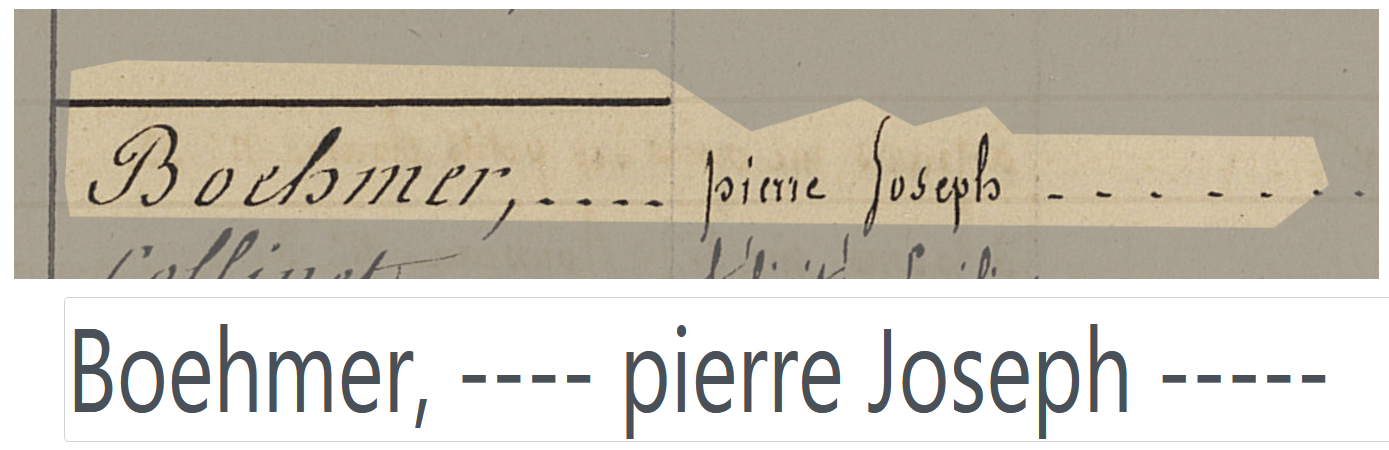 Boehmer, .... pierre Joseph - - - - - - -
Collinet
Boehmer, ---- pierre Joseph -----